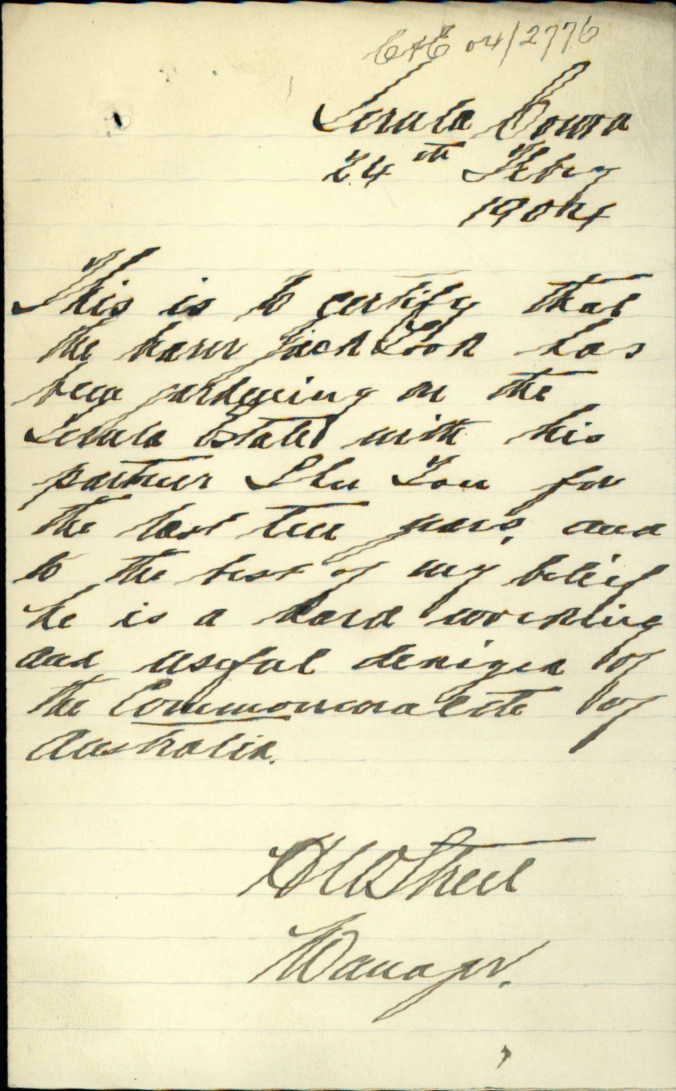 C&E 04/2776
Ierula Cowra
24th Feby
1904
This is to certify that
the bearer Jack Look has
been gardening on the
Ierula Estate with his
partner for
the last ten years, and
to the best of my belief
he is a hard working
and useful denizen of
the Commonwealth of
Australia.
Street
Manager.